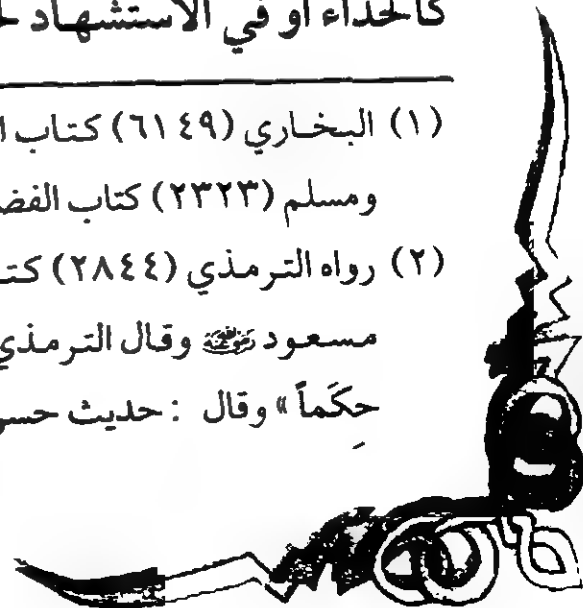 كالحداء أو في الاستشهاد
(١) البخاري (٦١٤٩) كتاب
ومسلم (٢٣٢٣) كتاب
(٢) رواه الترمذي (٢٨٤٤)
مسعود رضي الله عنه وقال الترمذي
حِكَماً» وقال : حديث